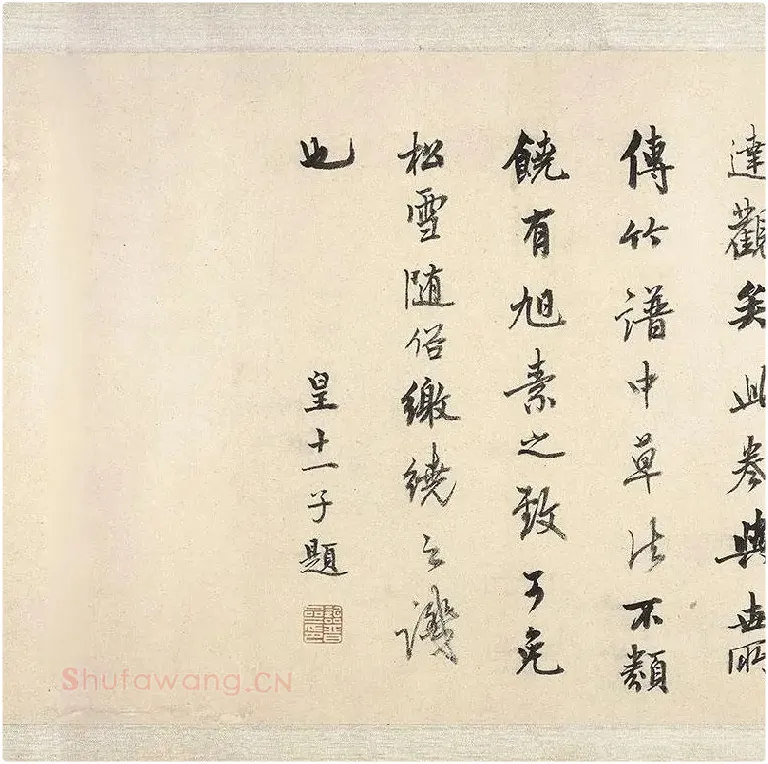 達觀矣此卷與世所
傳竹譜中草法不類
饒有旭素之致可免
松雪随俗繳繞之譏
也
皇十一子題
Shufawang.CN